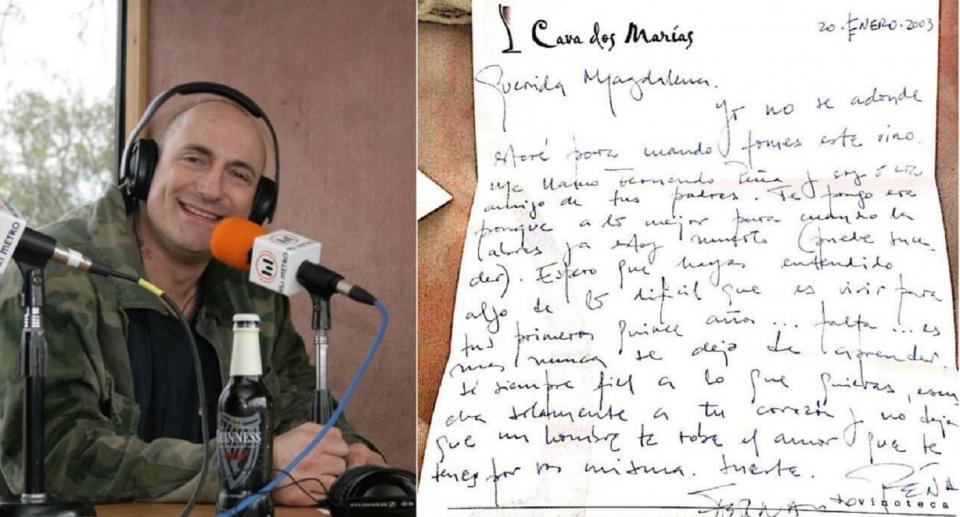 METRO
METRO
GUINNESS
Cava dos Marías
20. ENERO. 2003
Querida Magdalena.
Yo no se adonde
estaré para cuando tomes este vino.
Me llamo Fernando Peña y soy ó era
amigo de tus padres. Te pongo era
porque a lo mejor para cuando la
abras ya estoy muerto (puede suce
der). Espero que hayas entendido
algo de lo dificil que es vivir para
tus primeros quince años... falta... es
mas nunca se deja de aprender.
Sé siempre fiel a lo que quieras, escu
cha solamente a tu corazón y no deja
que un hombre te robe el amor que te
tenes por vos misma. Suerte.
PEÑA
vinoteca